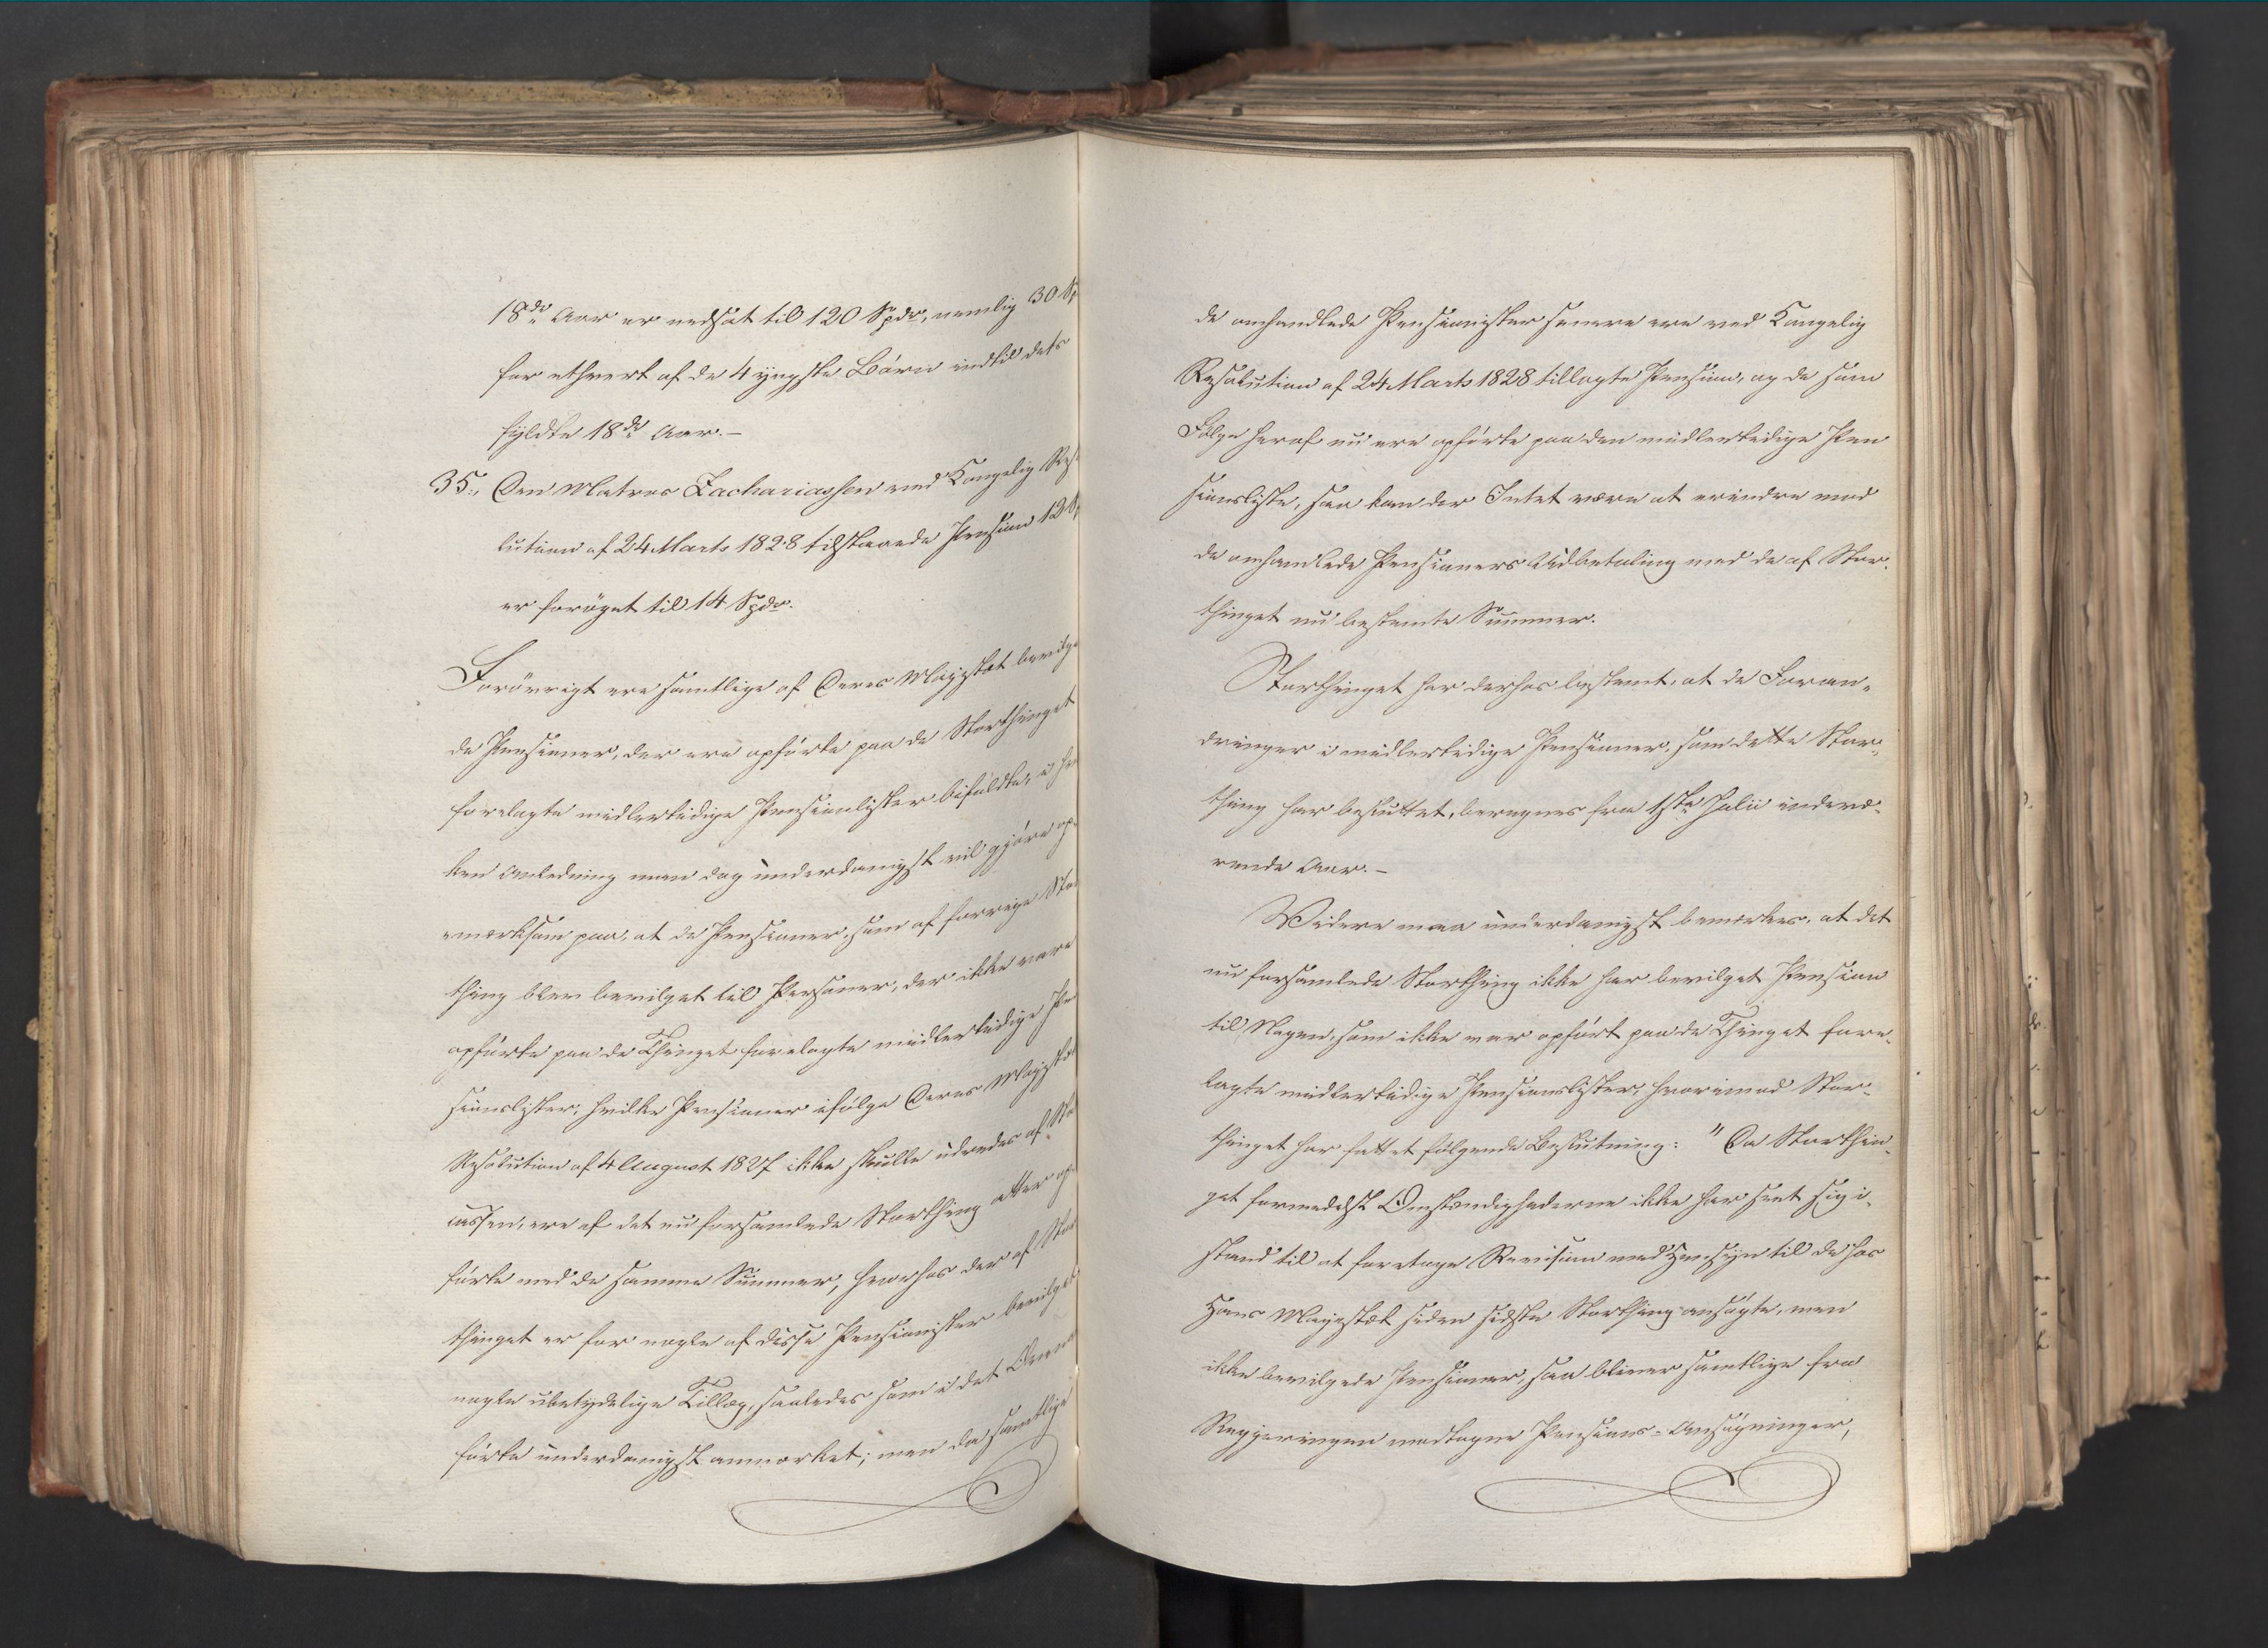 18de Aar er nedsat til 120 Spdr, nemlig 30 Sp
for ethvert af de 4 yngste Børn indtil dets
fyldte 18de Aar.–
35., Den Matros Zachariassen ved Kongelig Res
lution af 24 Marts 1828 tilstaaede Pension 12 Sp
er forøget til 14 Spdr.
Forøvrigt ere samtlige af Deres Majestæt bevilge
de Pensioner, der ere opførte paa de Storthinget
forelagte midlertidige Pensionlister bifaldte, i hvil
ken Anledning man dog underdanigst vil gjøre op
mærksom paa, at de Pensioner, som af forrige Stor
thing blev bevilget til Personer, der ikke vare
opførte paa de Thinget forelagte midlertidige Pen
sionslister, hvilke Pensioner ifølge Deres Majestæts
Resolution af 4 August 1827 ikke skulle udredes af Sta
cassen, ere af det nu forsamlede Storthing atter op
førte med de samme Summer, hvorhos der af Stor
thinget er for nogle af disse Pensionister bevilget
nogle ubetydelige Tillæg, saaledes som i det Oven
førte underdanigst anmærket; men da samtlige
de omhandlede Pensionister senere ere ved Kongelig
Resolution af 24 Marts 1828 tillagte Pension, og de som
Følge heraf nu ere opførte paa den midlertidige Pen
sionsliste, saa kan der Intet være at erindre mod
de omhandlede Pensioners Udbetaling med de af Stor-
thinget nu bestemte Summer.
Storthinget har derhos bestemt, at de Foran-
dringer i midlertidige Pensioner, som dette Stor-
thing har besluttet, beregnes fra 1ste Julii indevæ-
rende Aar.–
Videre maa underdanigst bemærkes, at det
nu forsamlede Storthing ikke har bevilget Pension
til Nogen, som ikke var opført paa de Thinget fore-
lagte midlertidige Pensionslister, hvorimod Stor-
thinget har fattet følgende Beslutning: "Da Storthin-
get formedelst Omstændighederne ikke har seet sig i-
stand til at foretage Revision med Hensyn til de hos
Hans Majestæt siden sidste Storthing ansøgte, men
ikke bevilgede Pensioner, saa bliver samtlige fra
Regjeringen modtagne Pensions-Ansøgninger,